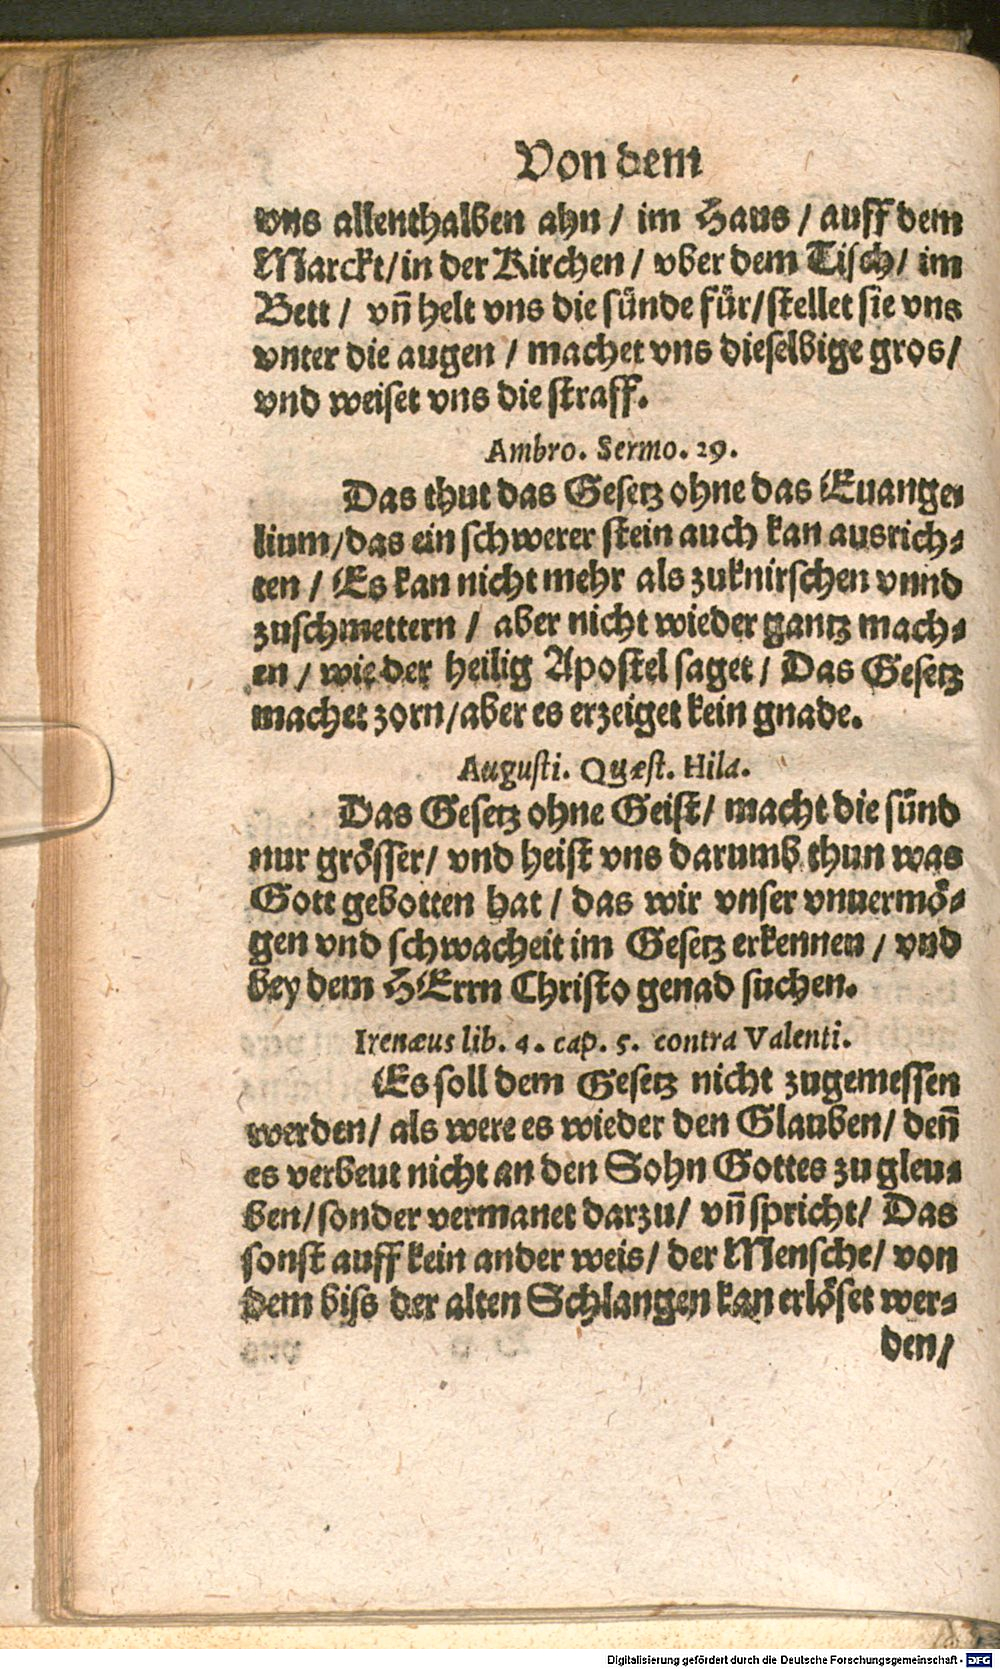 Von dem
vns allenthalben ahn / im Haus / auff dem
Marckt/in der Kirchen / vber dem Tisch/ im
Bett / vñ helt vns die sünde für/stellet sie vns
vnter die augen / machet vns dieselbige gros/
vnd weiset vns die straff.
Ambro. Sermo. 29.
Das thut das Gesetz ohne das Euange-
lium/das ein schwerer stein auch kan ausrich-
ten / Es kan nicht mehr als zuknirschen vnnd
zuschmettern / aber nicht wieder gantz mach-
en / wie der heilig Apostel saget / Das Gesetz
machet zorn/aber es erzeiget kein gnade.
Augusti. Quæst. Hila.
Das Gesetz ohne Geist/ macht die sünd
nur grösser/ vnd heist vns darumb thun was
Gott gebotten hat / das wir vnser vnuermö-
gen vnd schwacheit im Gesetz erkennen / vnd
bey dem HErrn Christo genad suchen.
Irenæus lib. 4. cap. 5. contra Valenti.
Es soll dem Gesetz nicht zugemessen
werden/ als were es wieder den Glauben/ deñ
es verbeut nicht an den Sohn Gottes zu gleu-
ben/sonder vermanet darzu/ vñ spricht/ Das
sonst auff kein ander weis/ der Mensche/ von
dem biss der alten Schlangen kan erlöset wer-
den/
Digitalisierung gefördert durch die Deutsche Forschungsgemeinschaft - DFG